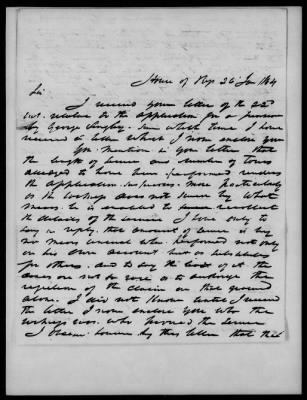 House of Rep 26 Jan 184
Sir
I received your letter of the 22d
inst. relative to the application for a pension
by George Singley. Since which time I have
received a letter which I now enclose you
You mention in your letter that
the length of service and number of Tours
alledged to have been performed renders
the application More particularly
as the does not by what
means he is enabled to so
the details of the service. I have only to
say in reply, that amount of service is by
no means unusual performed not only
on his own account but as substitute
for others. and to say the least of it the
does not to me to authorize the
rejection of the claim on that ground
alone. I did not know until I received
the letter I now enclose you who the
was. who proved the service
I observe however by this letter that this